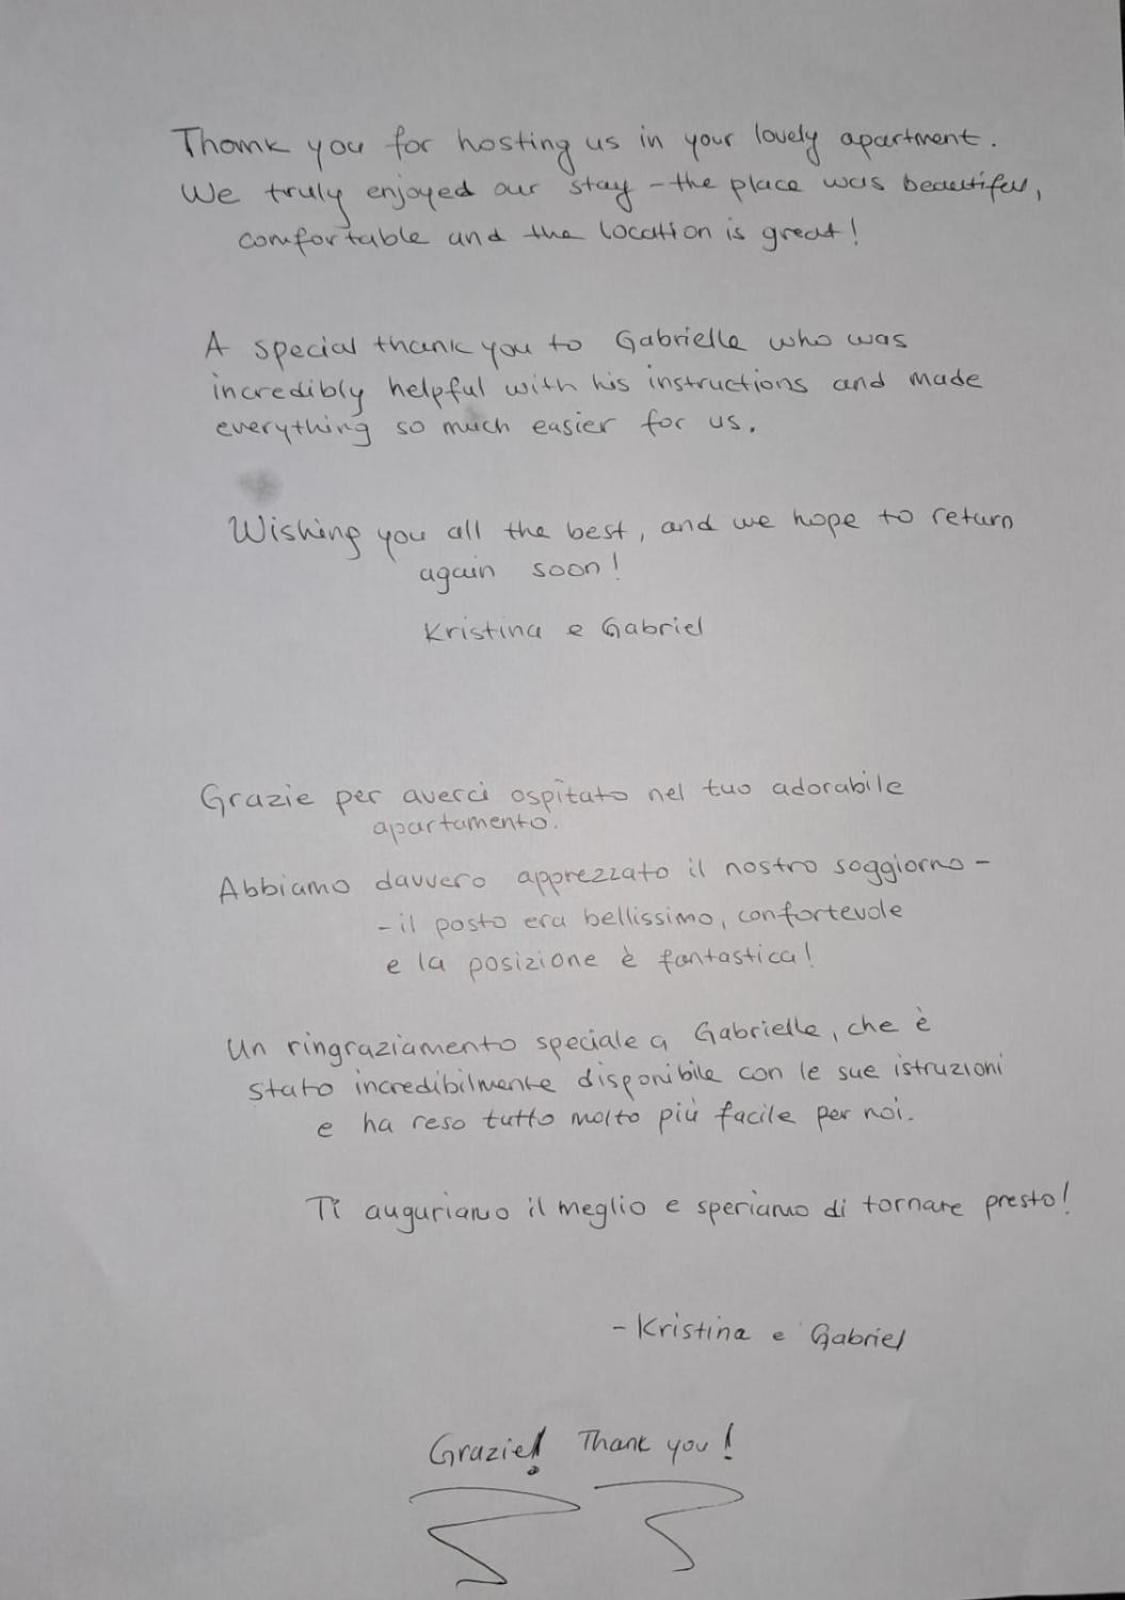 Thank you for hosting us in your lovely apartment.
We truly enjoyed our stay - the place was beautiful,
comfortable and the location is great!
A special thank you to Gabrielle who was
incredibly helpful with his instructions and made
everything so much easier for us.
Wishing you all the best, and we hope to return
again soon!
Kristina e Gabriel
Grazie per averci ospitato nel tuo adorabile
apartamento.
Abbiamo davvero apprezzato il nostro soggiorno -
- il posto era bellissimo, confortevole
e la posizione è fantastica!
Un ringraziamento speciale a Gabrielle, che è
stato incredibilmente disponibile con le sue istruzioni
e ha reso tutto molto più facile per noi.
Ti auguriamo il meglio e speriamo di tornare presto!
- Kristina e Gabriel
Grazie! Thank you!